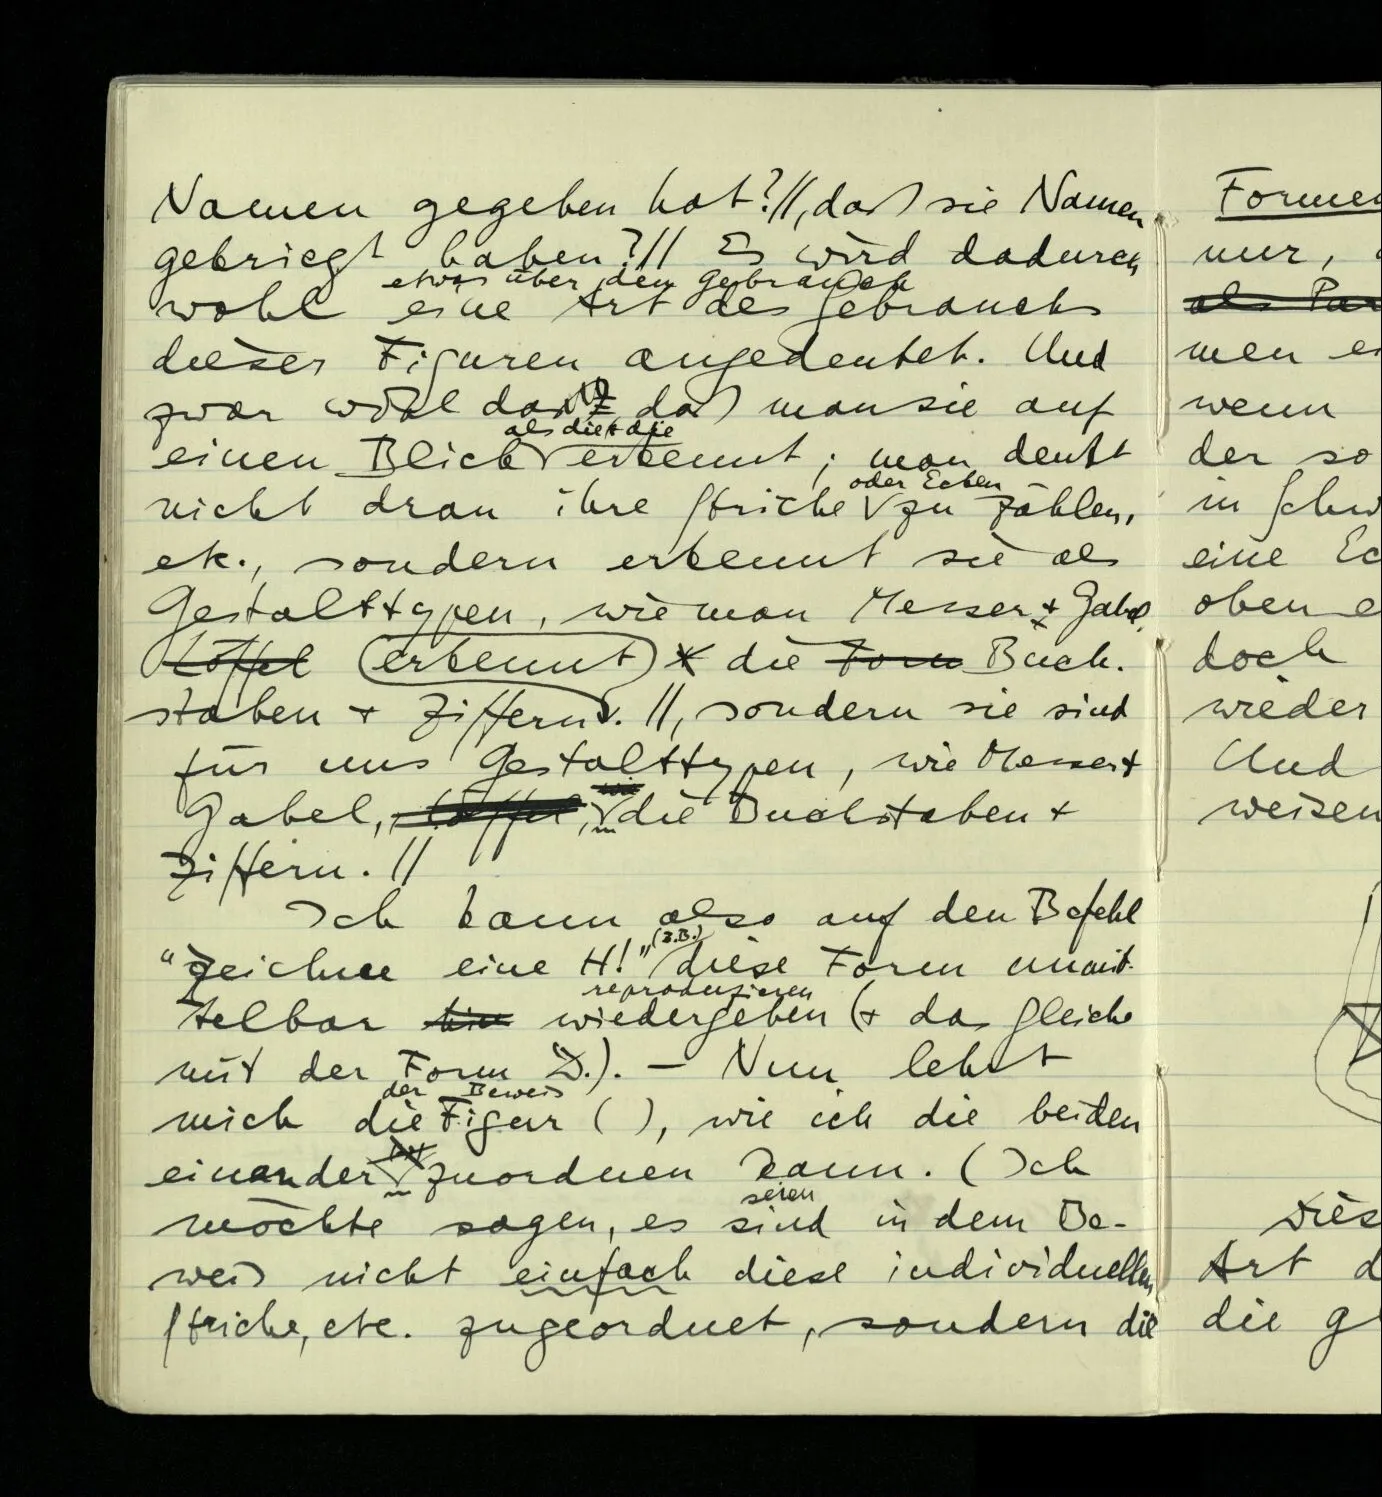 Namen gegeben hat?//, daß sie Namen
gekriegt haben?// Es wird dadurch
etwas über den Gebrauch
wohl eine Art des Gebrauchs
dieser Figuren angedeutet. Und
zwar wohl daß man sie auf
als die + die
einen Blick erkennt; man denkt
oder Ecken
nicht dran ihre Striche zu zählen,
etc., sondern erkennt sie als
Gestalttypen, wie man Messer + Gabel,
Löffel erkennt die Form Buch-
staben + Ziffern. //, sondern sie sind
für uns Gestalttypen, wie Messer +
wie
Gabel, Löffel, die Buchstaben +
Ziffern. //
Ich kann also auf den Befehl
(z.B.)
"zeichne eine H!" diese Form unmit-
reproduzieren
telbar hin wiedergeben (+ das gleiche
mit der Form D.). – Nun lehrt
der Beweis
mich die Figur ( ), wie ich die beiden
einander zuordnen kann. (Ich
seien
möchte sagen, es sind in dem Be-
weis nicht einfach diese individuellen
Striche, etc. zugeordnet, sondern die
Formen
nur,
als
men
wenn
der so
in
eine
oben
doch
wieder
Und
weisen
Art
die